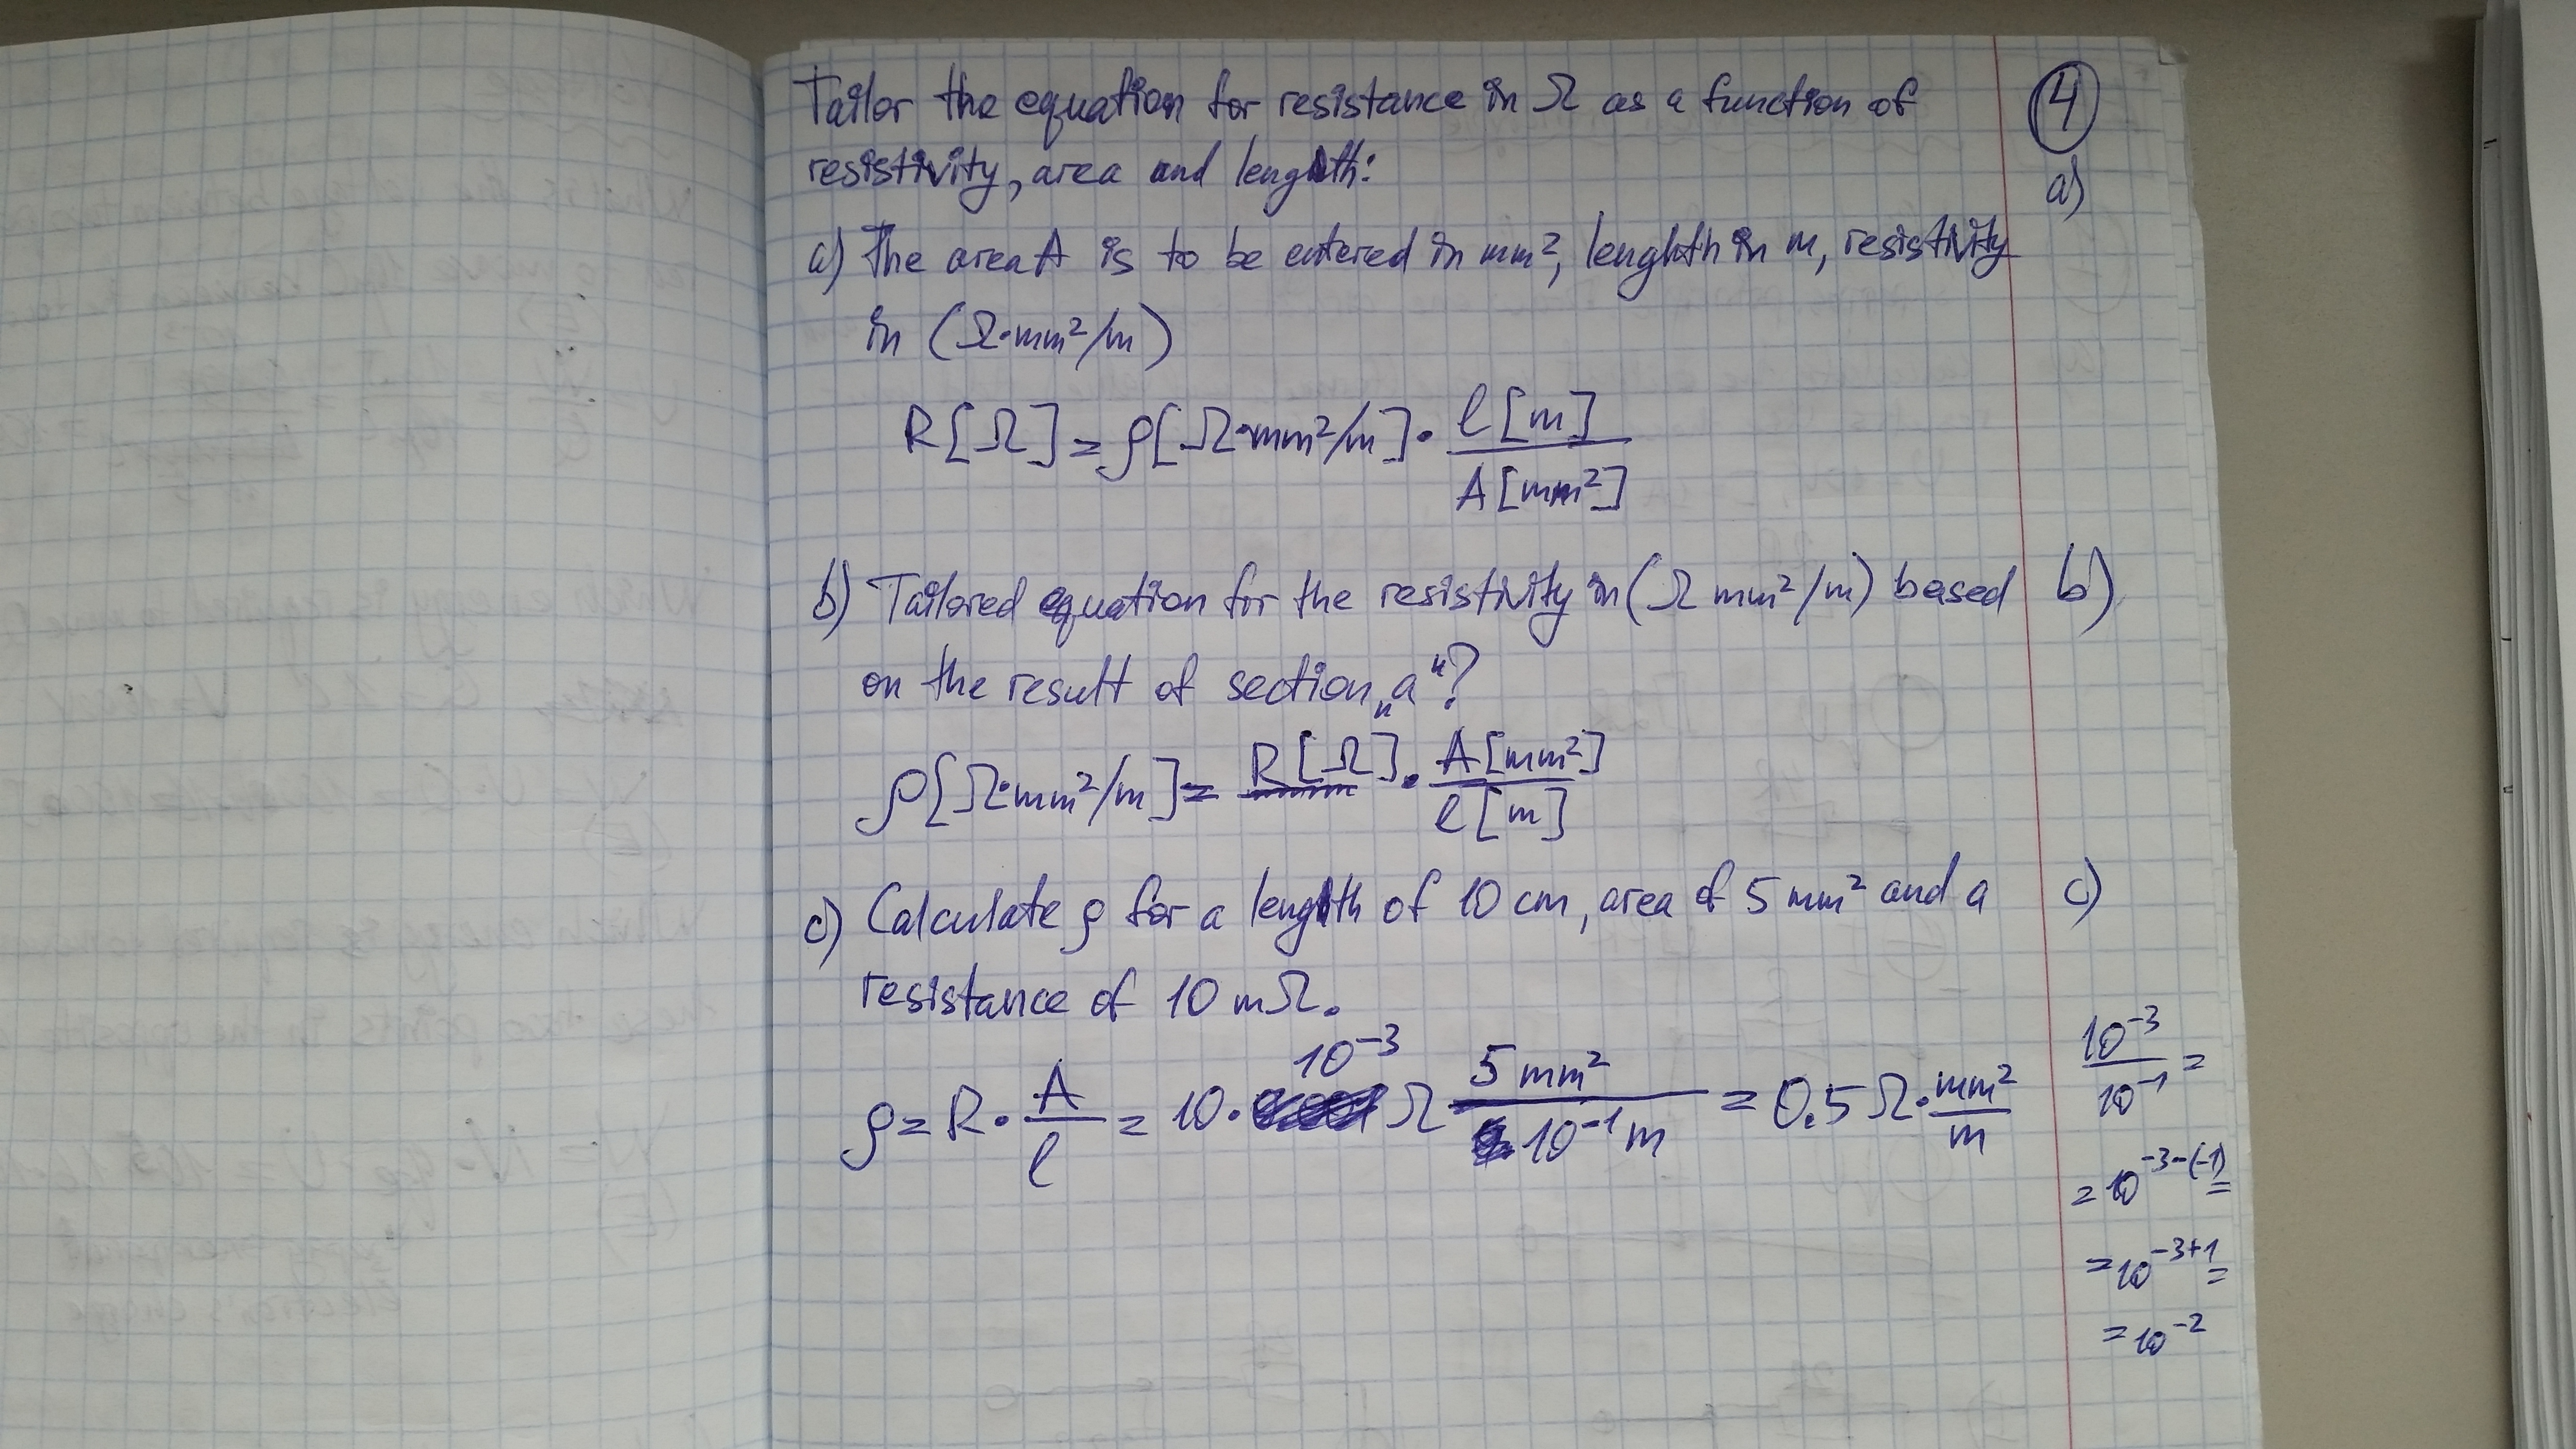 Tailor the equation for resistance in Ω as a function of
resistivity, area and length:
④
a)
a) The area A is to be entered in mm², length in m, resistivity
in (Ω·mm²/m)
R[Ω] = ρ[Ω·mm²/m] · l[m] / A[mm²]
b) Tailored equation for the resistivity in (Ω mm²/m) based
b)
on the result of section „a“?
ρ[Ω·mm²/m] = R[Ω] · A[mm²] / l[m]
c) Calculate ρ for a length of 10 cm, area of 5 mm² and a
c)
resistance of 10 mΩ.
ρ = R · A / l = 10 · 10⁻³ Ω 5 mm² / 10⁻¹ m = 0.5 Ω · mm² / m
10⁻³ / 10⁻¹ =
= 10⁻³⁻⁽⁻¹⁾ =
= 10⁻³⁺¹ =
= 10⁻²